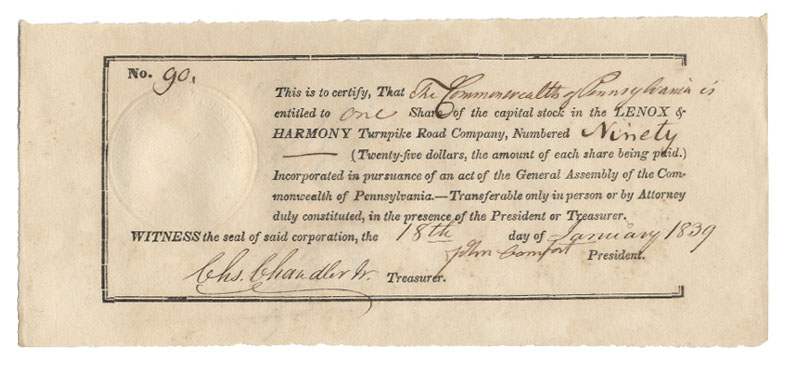 No. 90.
This is to certify, That The Commonwealth of Pennsylvania is
entitled to one Share of the capital stock in the LENOX &
HARMONY Turnpike Road Company, Numbered Ninety
(Twenty-five dollars, the amount of each share being paid.)
Incorporated in pursuance of an act of the General Assembly of the Com-
monwealth of Pennsylvania.—Transferable only in person or by Attorney
duly constituted, in the presence of the President or Treasurer.
WITNESS the seal of said corporation, the 18th day of January 1839
John Comfort President.
Chs. Chandler Jr. Treasurer.